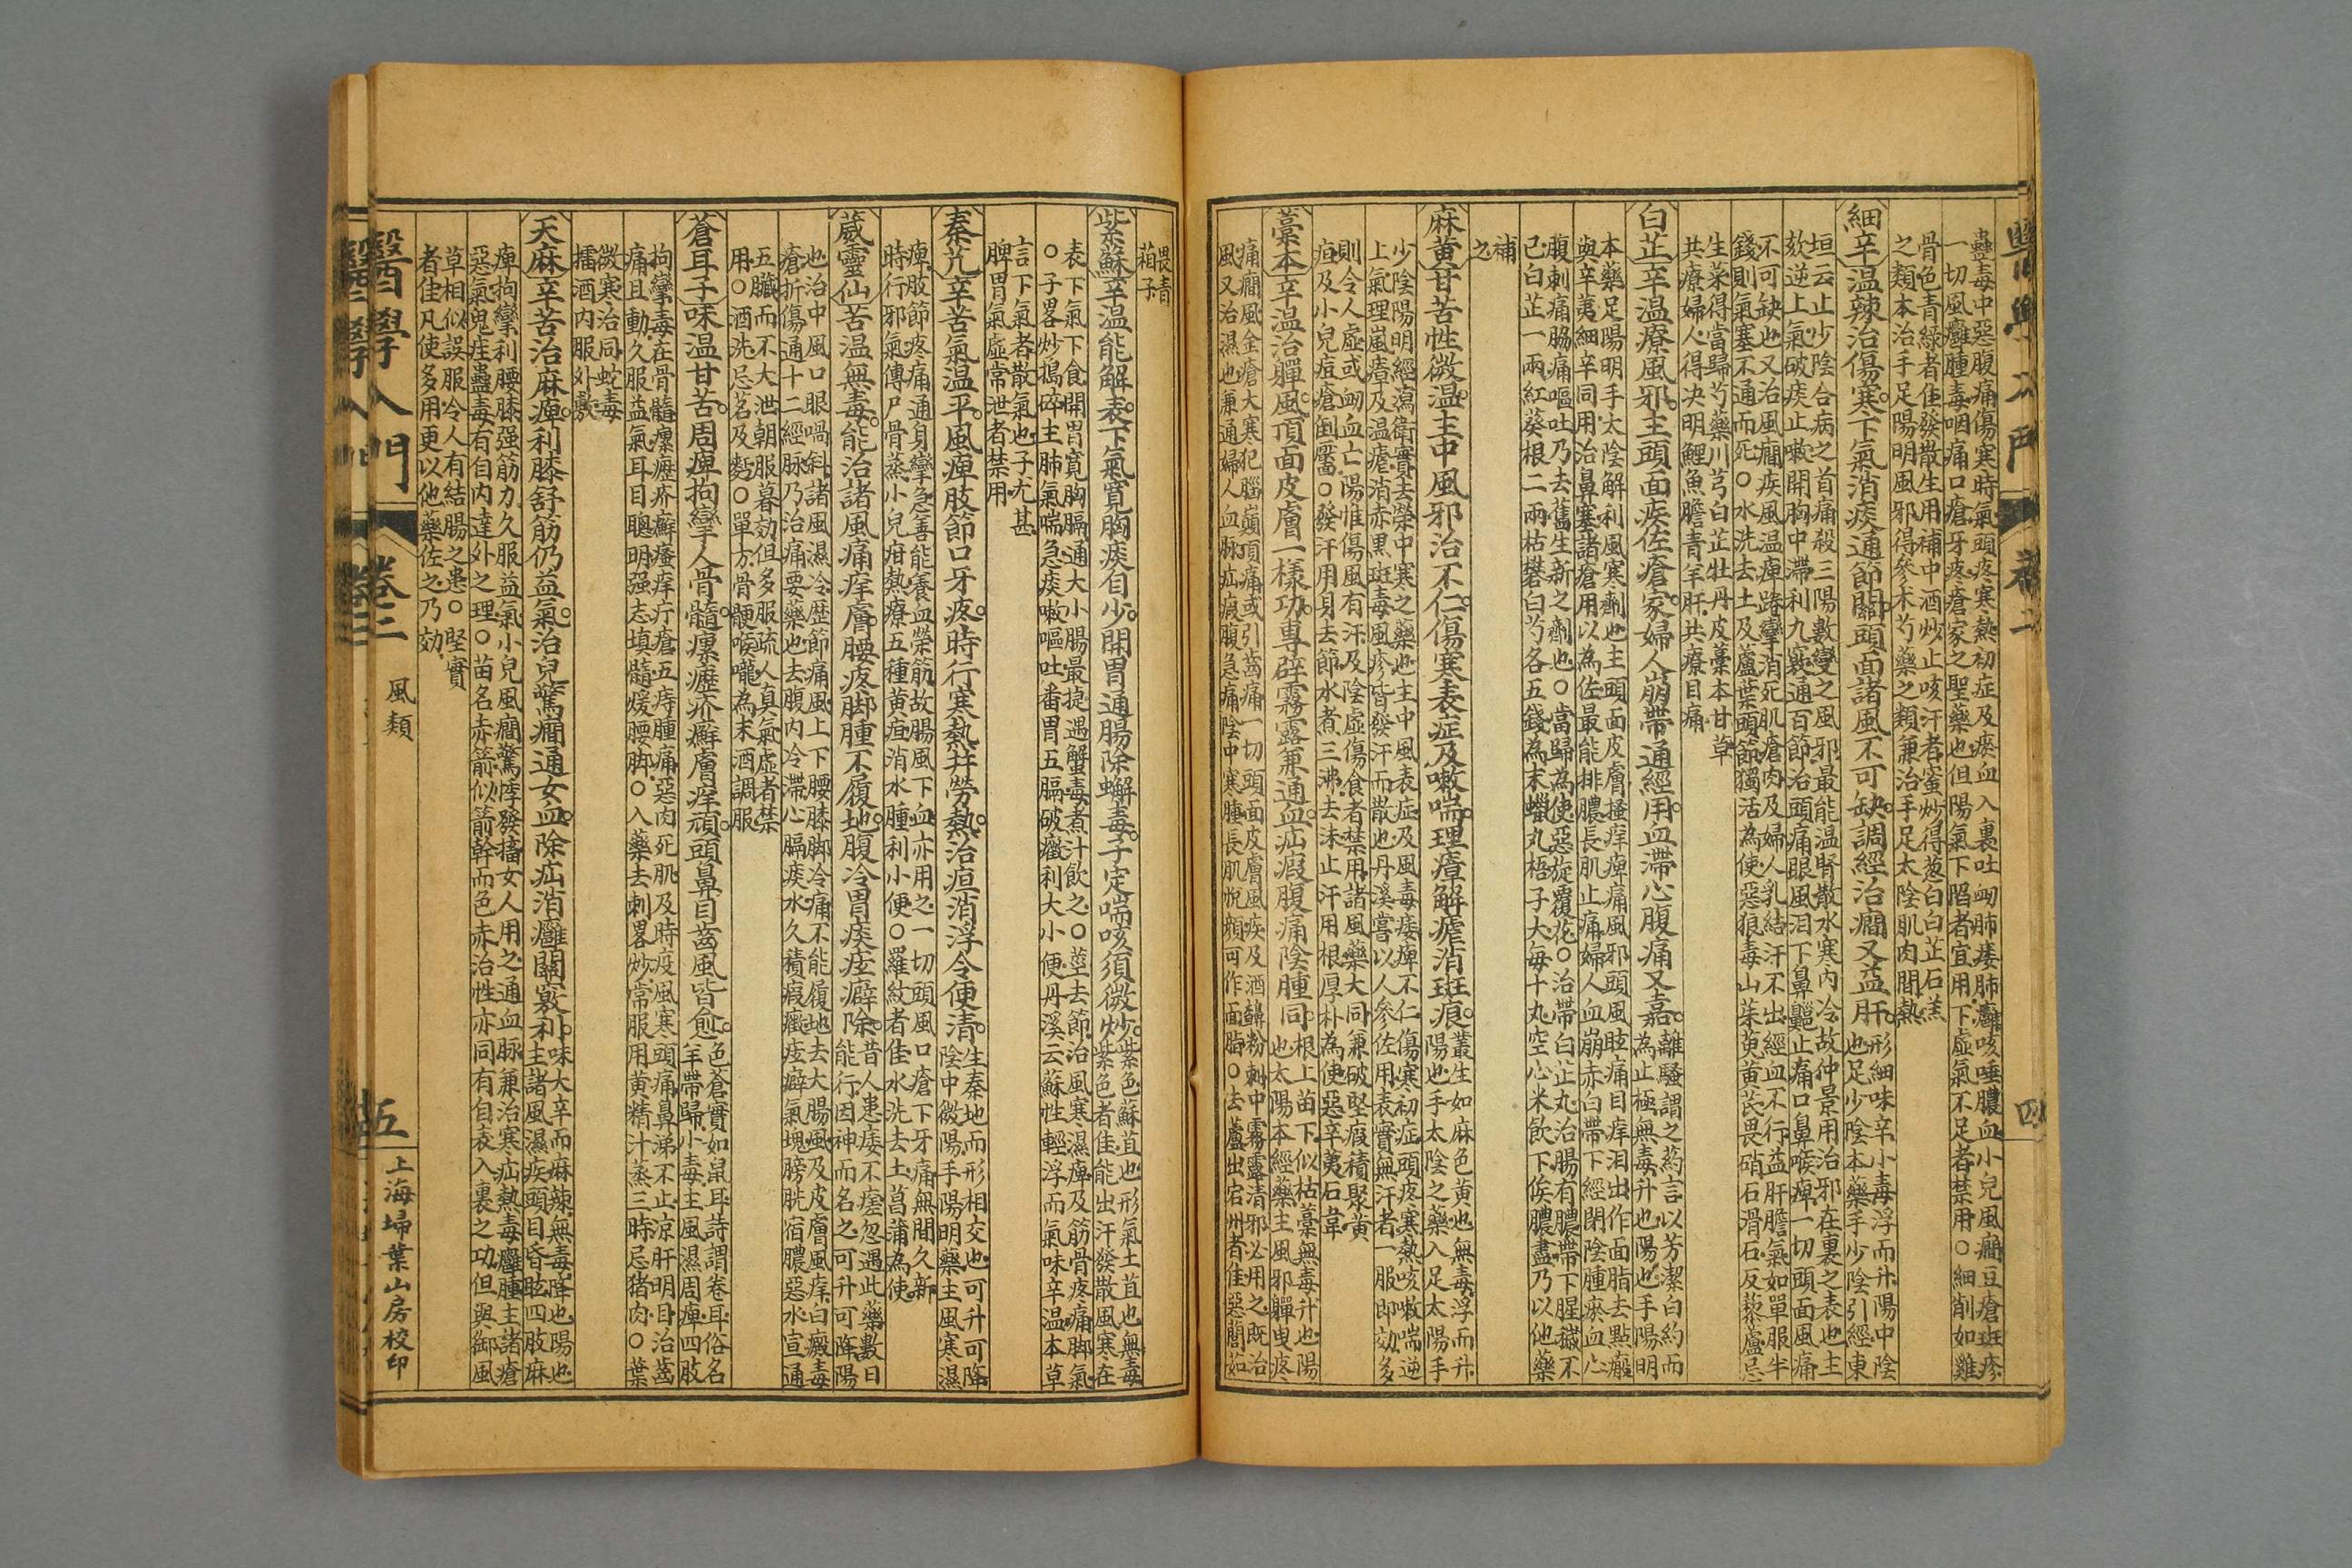 醫學入門
卷二
四
蠱毒中惡腹痛傷寒時氣頭疼寒熱初症及瘀血入裏吐衂肺痿肺癰咳唾膿血小兒風癎豆瘡斑疹
一切風癰腫毒咽痛口瘡牙疼瘡家之聖藥也但陽氣下陷者宜用下虛氣不足者禁用○細削如雞
骨色青綠者佳發散生用補中酒炒止咳汗者蜜炒得葱白白芷石羔
之類本治手足陽明風邪得參朮芍藥之類兼治手足太陰肌肉間熱
細辛溫辣治傷寒下氣消痰通節關頭面諸風不可缺調經治癎又益肝
形細味辛小毒浮而升陽中陰
也足少陰本藥手少陰引經東
垣云止少陰合病之首痛殺三陽數變之風邪最能溫腎散水寒內冷故仲景用治邪在裏之表也主
欬逆上氣破痰止嗽開胸中滯利九竅通百節治頭痛眼風泪下鼻齆止痛口鼻喉痺一切頭面風痛
不可缺也又治風癎疾風溫痺踡攣消死肌瘡肉及婦人乳結汗不出經血不行益肝膽氣如單服半
錢則氣塞不通而死○水洗去土及蘆葉頭節獨活為使惡狼毒山茱萸黃芪畏硝石滑石反藜蘆忌
生菜得當歸芍藥川芎白芷牡丹皮藁本甘草
共療婦人得決明鯉魚膽青羊肝共療目痛
白芷辛溫療風邪主頭面疾佐瘡家婦人崩帶通經用血滯心腹痛又嘉
離騷謂之葯言以芳潔白約而
為止極無毒升也陽也手陽明
本藥足陽明手太陰解利風寒劑也主頭面皮膚搔痒痺痛風邪頭風眩痛目痒泪出作面脂去點瘢
與辛夷細辛同用治鼻塞諸瘡用以為佐最能排膿長肌止痛婦人血崩赤白帶下經閉陰腫瘀血心
腹刺痛脇痛嘔吐乃去舊生新之劑也○當歸為使惡旋覆花○治帶白芷丸治腸有膿帶下腥穢不
已白芷一兩紅葵根二兩枯礬白芍各五錢為末蠟丸梧子大每十丸空心米飲下俟膿盡乃以他藥
補
之
麻黃甘苦性微溫主中風邪治不仁傷寒表症及嗽喘理瘴解瘧消斑痕
叢生如麻色黃也無毒浮而升
陽也手太陰之藥入足太陽手
少陰陽明經瀉衛實去榮中寒之藥也主中風表症及風毒痿痺不仁傷寒初症頭疼寒熱咳嗽喘逆
上氣理嵐瘴及溫瘧消赤黑斑毒風疹皆發汗而散也丹溪嘗以人參佐用表實無汗者一服即効多
則令人虛或衂血亡陽惟傷風有汗及陰虛傷食者禁用諸風藥大同兼破堅瘕積聚黃
疸及小兒痘瘡倒靨○發汗用身去節水煮三沸去沫止汗用根厚朴為使惡辛夷石韋
藁本辛溫治嚲風頂面皮膚一樣功專辟霧露兼通血疝瘕腹痛陰腫同
根上苗下似枯藁無毒升也陽
也太陽本經藥主風邪嚲曳疼
痛癎風金瘡大寒犯腦巔頂痛或引齒痛一切頭面皮膚風疾及酒齄粉刺中霧露清邪必用之既治
風又治濕也兼通婦人血脉疝瘕腹急痛陰中寒腫長肌悅顏可作面脂○去蘆出宕州者佳惡䕡茹
畏青
葙子
紫蘇辛溫能解表下氣寬胸痰自少開胃通腸除蟹毒子定喘咳須微炒
紫色蘇苴也形氣土苴也無毒
紫色者佳能出汗發散風寒在
表下氣下食開胃寬胸膈通大小腸最捷遇蟹毒煮汁飲之○莖去節治風寒濕痺及筋骨疼痛脚氣
○子畧炒搗碎主肺氣喘急痰嗽嘔吐番胃五膈破癥利大小便丹溪云蘇性輕浮而氣味辛溫本草
言下氣者散氣也子尤甚
脾胃氣虛常泄者禁用
秦艽辛苦氣溫平風痺肢節口牙疼時行寒熱并勞熱治疸消浮令便清
生秦地而形相交也可升可降
陰中微陽手陽明藥主風寒濕
痺肢節疼痛通身攣急善能養血榮筋故腸風下血亦用之一切頭風口瘡下牙痛無間久新
時行邪氣傳尸骨蒸小兒疳熱療五種黃疸消水腫利小便○羅紋者佳水洗去土菖蒲為使
葳靈仙苦溫無毒能治諸風痛痒膚腰疼脚腫不履地腹冷胃痰痃癖除
昔人患痿不瘥忽遇此藥數日
能行因神而名之可升可降陽
也治中風口眼喎斜諸風濕冷歷節痛風上下腰膝脚冷痛不能履地去大腸風及皮膚風痒白癜毒
瘡折傷通十二經脉乃治痛要藥也去腹內冷滯心膈痰水久積瘕癥痃癖氣塊膀胱宿膿惡水宣通
五臟而不大泄朝服暮効但多服疏人真氣虛者禁
用○酒洗忌茗及麪○單方骨髓喉嚨為末酒調服
蒼耳子味溫甘苦周痺拘攣人骨髓瘰癧疥癬膚痒頑頭鼻目齒風皆愈
色蒼實如鼠耳詩謂卷耳俗名
羊帶歸小毒主風濕周痺四肢
拘攣毒在骨髓瘰癧疥癬瘙痒疔瘡五痔腫痛惡肉死肌及時疫風寒頭痛鼻涕不止凉肝明目治齒
痛且動久服益氣耳目聰明强志填髓煖腰脚○入藥去刺畧炒常服用黃精汁蒸三時忌猪肉○葉
微寒治同蛇毒
擂酒內服外敷
天麻辛苦治麻痺利膝舒筋仍益氣治兒驚癎通女血除疝消癰關竅利
味大辛而麻辣無毒降也陽也
主諸風濕疾頭目昏眩四肢麻
痺拘攣利腰膝强筋力久服益氣小兒風癎驚悸發搐女人用之通血脉兼治寒疝熱毒癰腫主諸瘡
惡氣鬼疰蠱毒有自內達外之理○苗名赤箭似箭幹而色赤治性亦同有自表入裏之功但與御風
草相似誤服令人有結腸之患○堅實
者佳凡使多用更以他藥佐之乃効
醫學入門
卷二
風類
五
上海埽葉山房校印